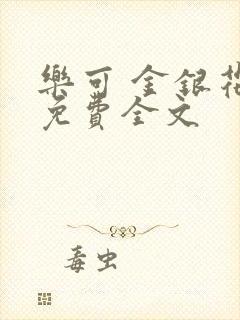 樂可 金銀花
免費全文
毒虫